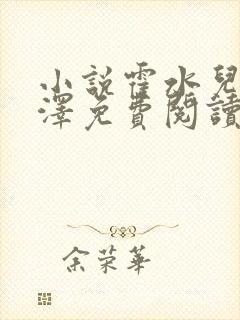 小說霍水兒
澤免費閱讀
余荣華